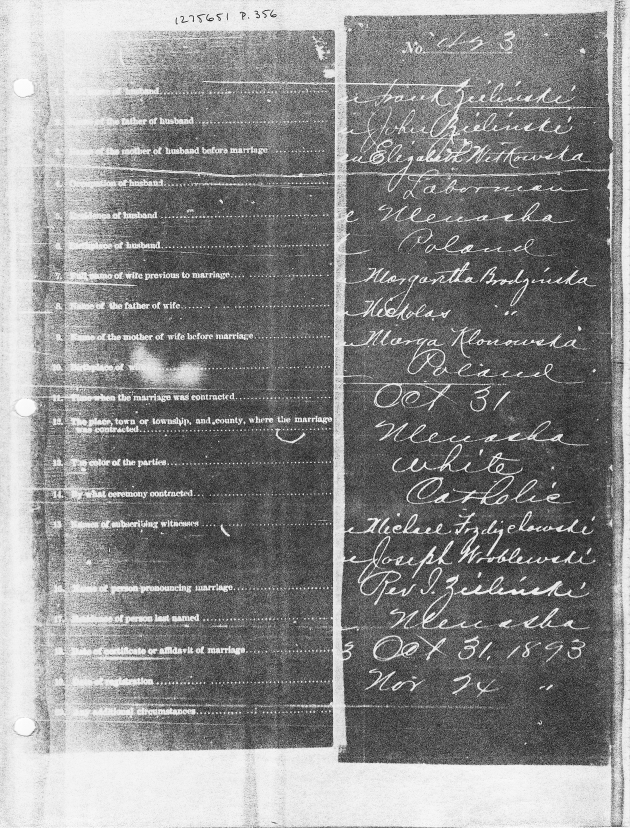 1275651 P. 356
No. 3
of husband
Frank Zielinski
of the father of husband
John Zielinski
of the mother of husband before marriage
Elizabeth Witkowska
4. Occupation of husband
Laborman
5. Residence of husband
Menasha
6. Birthplace of husband
Poland
7. Full name of wife previous to marriage
Margaretha Brodzinska
8. Name of the father of wife
Nickolas "
9. Name of the mother of wife before marriage
Marya Klonowska
10. Birthplace of
Poland
11. Time when the marriage was contracted
Oct 31
12. The place, town or township, and county, where the marriage
was contracted
Menasha
13. The color of the parties
white
14. By what ceremony contracted
Catholic
15. Names of subscribing witnesses
Michael
Joseph Wroblewski
16. Name of person pronouncing marriage
Rev I. Zielinski
17. Residence of person last named
Menasha
18. Date of certificate or affidavit of marriage
Oct 31, 1893
19. Date of registration
Nov 24 "
circumstances